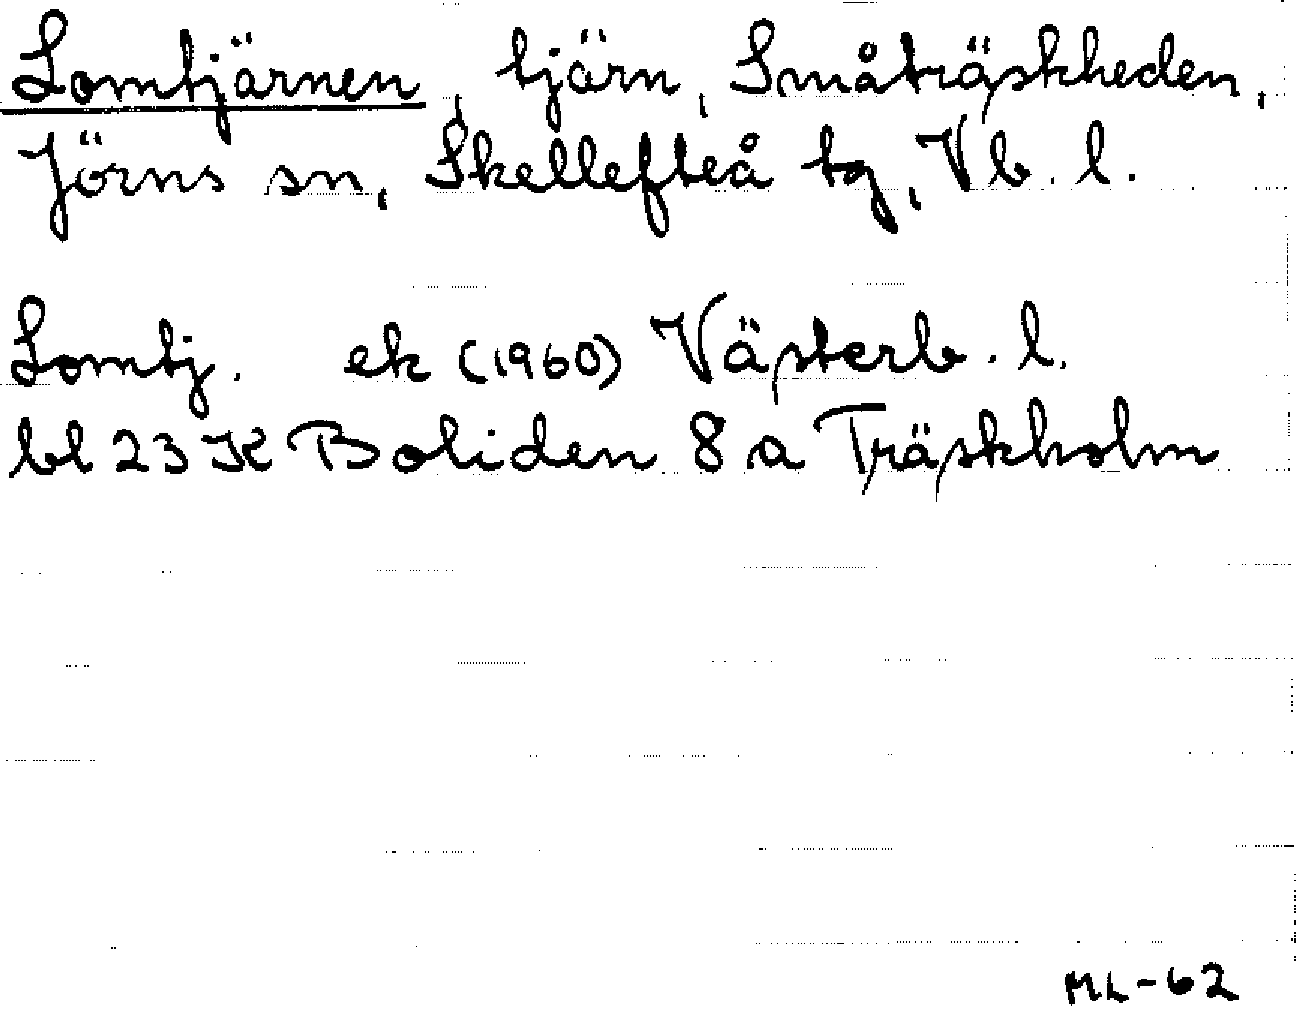 Lomtjärnen, tjärn, Småträskheden,
Jörns sn, Skellefteå tg, Vb. l.
Lomtj. ek (1960) Västerb. l.
bl 23 K Boliden 8 a Träskholm
ML-62